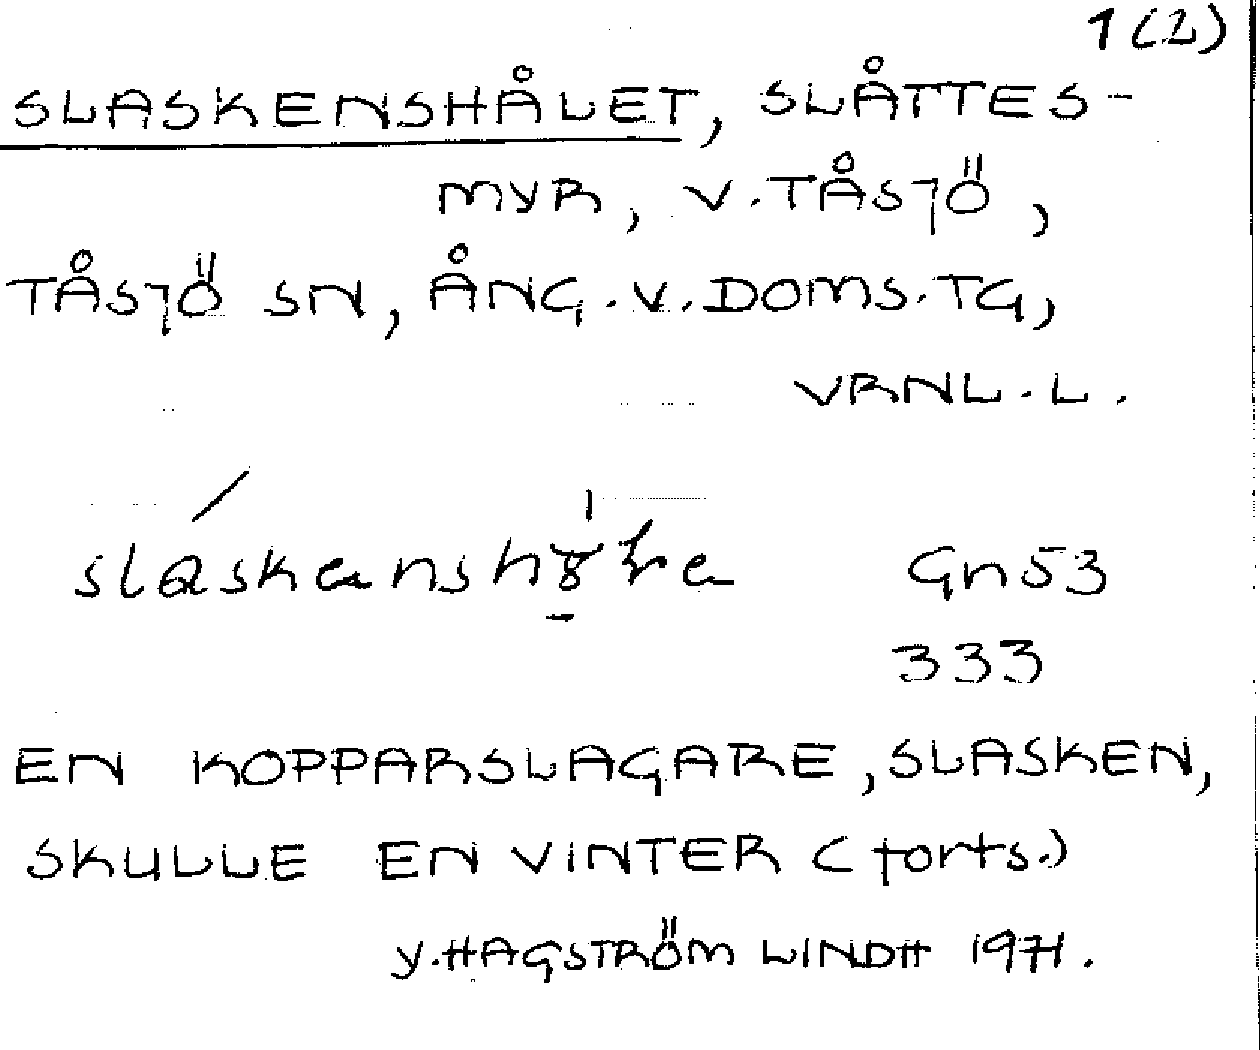 1(2)
SLASKENSHÅLET, SLÅTTES-
MYR, V. TÅSJÖ,
TÅSJÖ SN, ÅNG. V. DOMS. TG,
VRNL. L.
Gn53
333
EN KOPPARSLAGARE, SLASKEN,
SKULLE EN VINTER (forts.)
Y. HAGSTRÖM LINDH 1971.